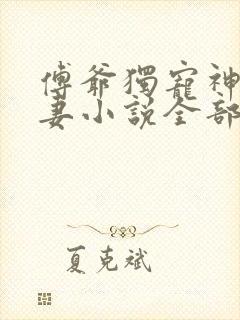 傅爺獨寵神
妻小說全部
夏克斌